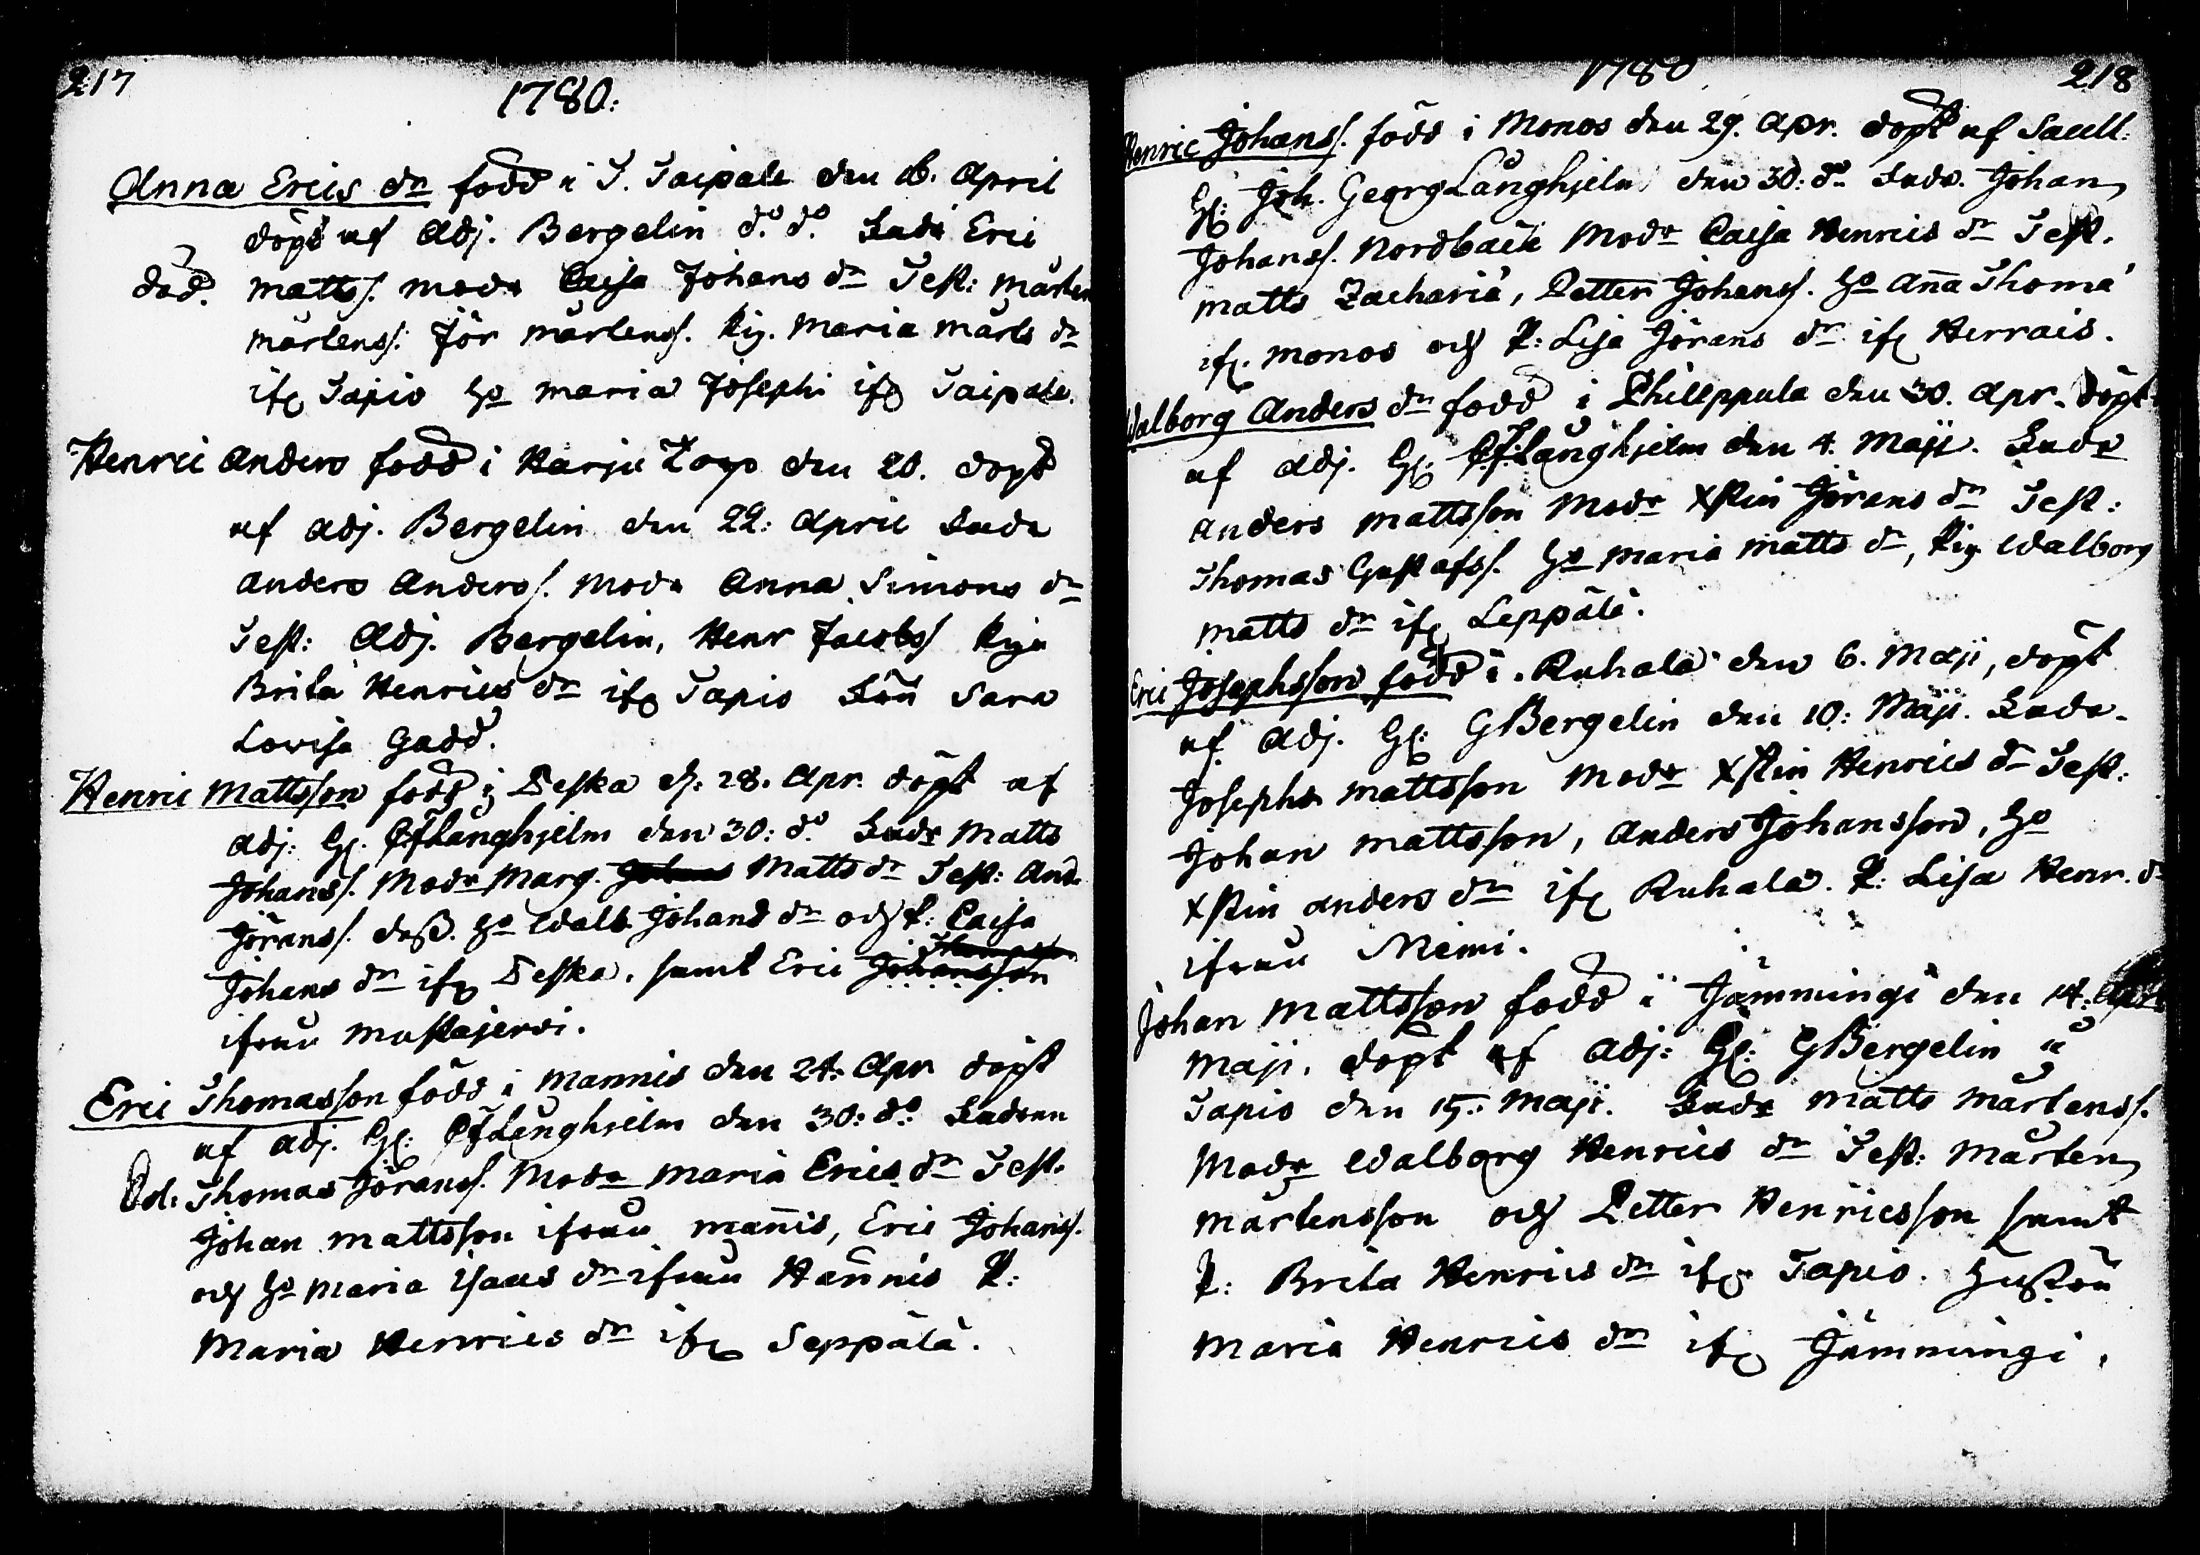 217
1780.
Anna Erics dr född i S. Saipale den 16. April
döpt af Adj. Bergelin do do fadr Eric
död. Matts. modr Caisa Johans dr Test: Mårten
Mårtens. Jör Mårtens. Pig. Maria Mårts dr
ifr Sapio ho Maria Josephi ifr Saipale.
Henric Anders född i Harju Torp den 20. döpt
af Adj. Bergelin den 22: April fadr
Anders Anders. modr Anna Simons dr
Test: Adj. Bergelin, Henr Jacobs Piga
Brita Henrics dr ifr Sapio Frun Sara
Lovisa Gadd.
Henric Mattsson född i Peska d. 28. Apr. döpt af
Adj: H: Långhjelm den 30: do fadr Matts
Johans. Modr Marg. Johans Matts dr Test: And.
Jörans. dess. ho Walb. Johans dr och P: Caisa
Johans dr ifr Peska, samt Eric Johansson
Thomasson
ifrån Mustajervi.
Eric Thomasson född i Mannis den 24. Apr döpt
af Adj. H: Långhjelm den 30: do Fadren
Thomas Jörans. Modr Maria Erics dr Test.
Johan Mattsson ifrån Man̄is, Eric Johans.
och ho Maria Isacs dr ifrån Hannis P:
Maria Henrics dr ifr Seppälä.
1780
218
Henric Johans. född i Monos den 29. Apr. döpt af Sacell:
H: Joh. Georg Långhjelm den 30: do Fadr. Johan
Johans. Nordbäck Modr Caisa Henrics dr Test.
Matts Zachariä, Petter Johans. ho An̄a Thomä
ifr. Monos och P: Lisa Jörans dr ifr Herrais.
Walborg Anders dr född i Philppula den 30. Apr. döpt
af Adj. H: Långhjelm den 4. Maji. Fadr
Anders Mattsson Modr Xstin Jörans dr Test:
Thomas Gustafs. ho Maria Matts dr, Pig Walborg
Matts dr ifr Leppälä.
Eric Josephsson född i Ruhala den 6. Maji, döpt
af Adj. H: GBergelin den 10: Maji. Fadr.
Josephs Mattsson Modr Xstin Henrics dr Test:
Johan Mattsson, Anders Johansson, ho
Xstin Anders dr ifr Ruhala. P: Lisa Henr. dr
ifrån Niemi.
Johan Mattsson född i Jämmingi den 14.
Maji. döpt af Adj: H: GBergelin i
Sapio den 15: Maji. Fadr Matts Mårtens.
Modr Walborg Henrics dr Test: Mårten
Mårtensson och Petter Henricsson samt
P: Brita Henrics dr ifr Sapio. Hustru
Maria Henrics dr ifr Jämmingi.